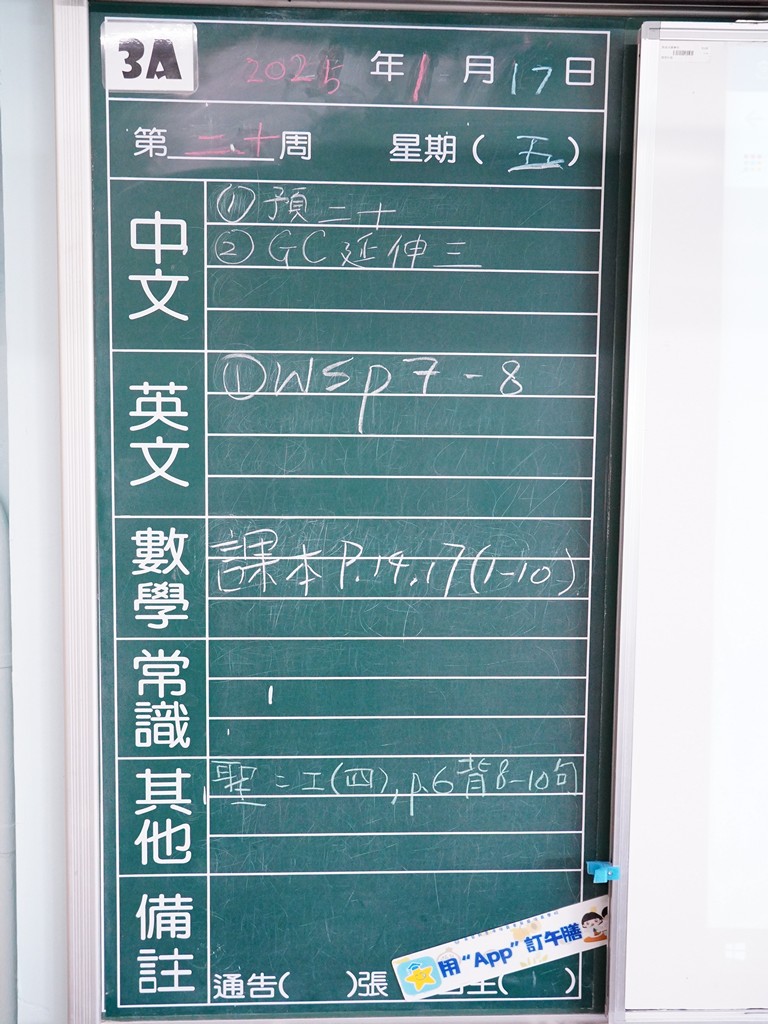 3A
2025年1月17日
第二十周 星期(五)
中文
①預二十
②GC延伸三
英文
①WS p7-8
數學
課本P.14,17(1-10)
常識
其他
聖二工(四),p.6背8-10句
備註
通告( )張
用“App”訂午膳